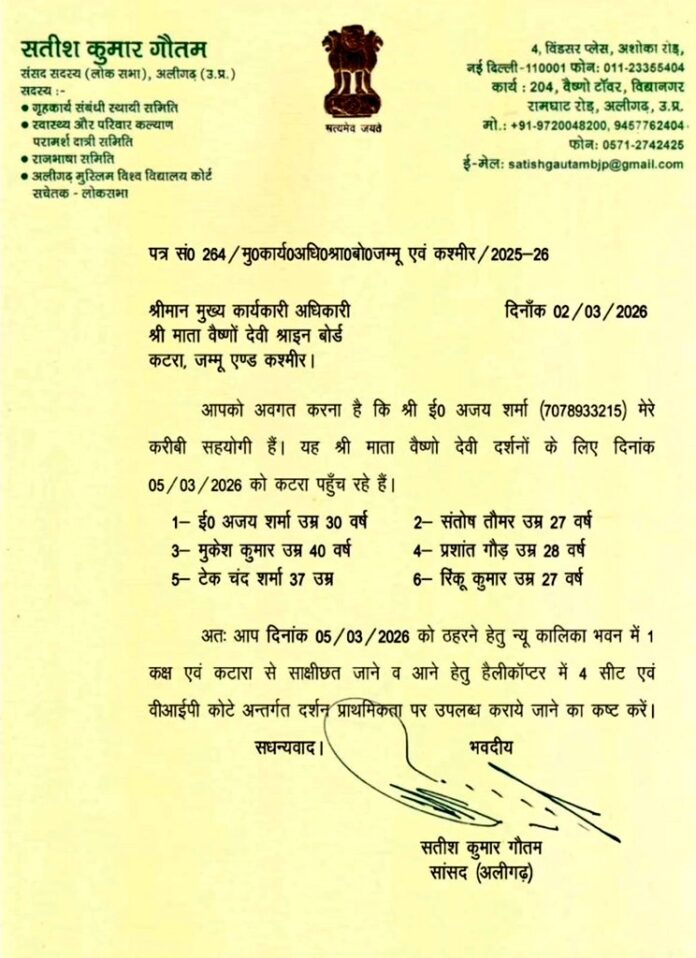 सतीश कुमार गौतम
संसद सदस्य (लोक सभा), अलीगढ़ (उ.प्र.)
सदस्य :-
● गृहकार्य संबंधी स्थायी समिति
● स्वास्थ्य और परिवार कल्याण
परामर्श दात्री समिति
● राजभाषा समिति
● अलीगढ़ मुस्लिम विश्व विद्यालय कोर्ट
सचेतक - लोकसभा
सत्यमेव जयते
4, विंडसर प्लेस, अशोका रोड़,
नई दिल्ली-110001 फोन: 011-23355404
कार्य : 204, वैष्णो टॉवर, विद्यानगर
रामघाट रोड़, अलीगढ़, उ.प्र.
मो.: +91-9720048200, 9457762404
फोन: 0571-2742425
ई-मेल: satishgautambjp@gmail.com
पत्र सं0 264/मु0कार्य0अधि0श्रा0बो0जम्मू एवं कश्मीर/2025-26
श्रीमान मुख्य कार्यकारी अधिकारी दिनाँक 02/03/2026
श्री माता वैष्णों देवी श्राइन बोर्ड
कटरा, जम्मू एण्ड कश्मीर।
आपको अवगत करना है कि श्री ई0 अजय शर्मा (7078933215) मेरे
करीबी सहयोगी हैं। यह श्री माता वैष्णो देवी दर्शनों के लिए दिनांक
05/03/2026 को कटरा पहुँच रहे हैं।
1- ई0 अजय शर्मा उम्र 30 वर्ष 2- संतोष तौमर उम्र 27 वर्ष
3- मुकेश कुमार उम्र 40 वर्ष 4- प्रशांत गौड़ उम्र 28 वर्ष
5- टेक चंद शर्मा 37 उम्र 6- रिंकू कुमार उम्र 27 वर्ष
अतः आप दिनांक 05/03/2026 को ठहरने हेतु न्यू कालिका भवन में 1
कक्ष एवं कटारा से साक्षीछत जाने व आने हेतु हैलीकॉप्टर में 4 सीट एवं
वीआईपी कोटे अन्तर्गत दर्शन प्राथमिकता पर उपलब्ध कराये जाने का कष्ट करें।
सधन्यवाद। भवदीय
सतीश कुमार गौतम
सांसद (अलीगढ़)